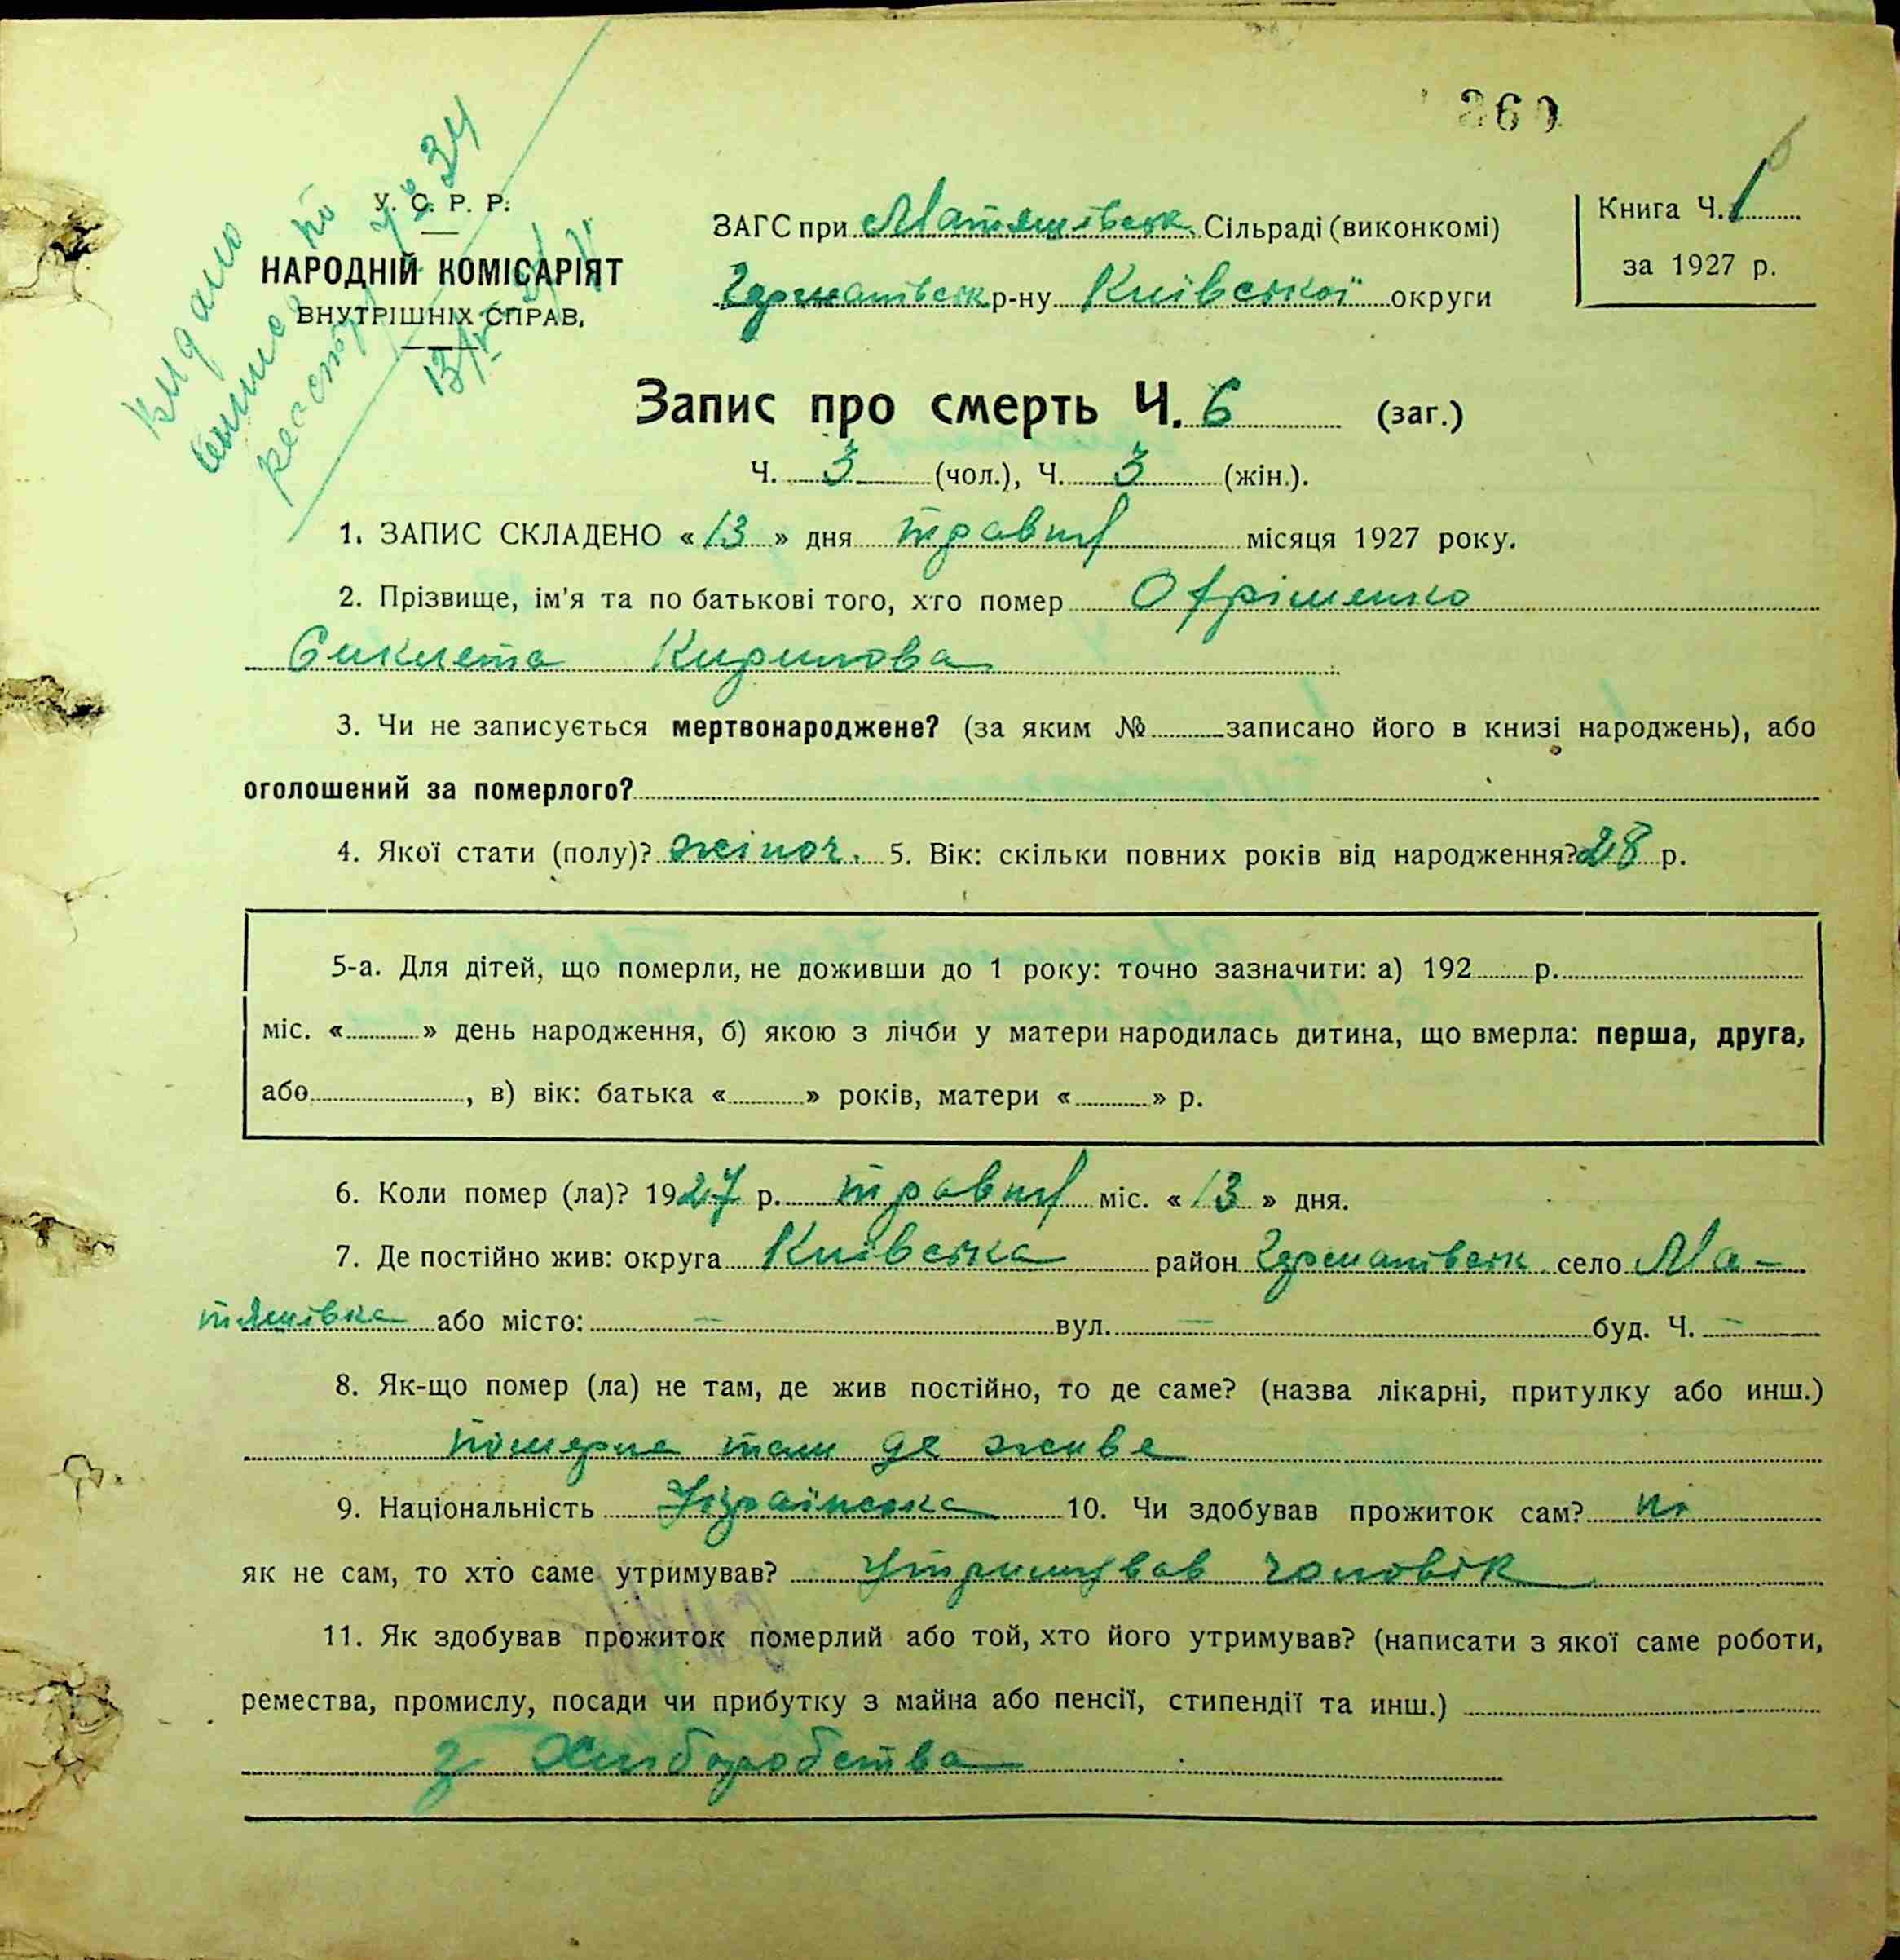 360
У. С. Р. Р.
НАРОДНІЙ КОМІСАРІЯТ
ВНУТРІШНІХ СПРАВ.
Видано
по
ЗАГС при Матяшівськ. Сільраді (виконкомі)
Германівськ р-ну Київської округи
Книга Ч. 1
за 1927 р.
Запис про смерть Ч. 6 (заг.)
Ч. 3 (чол.), Ч. 3 (жін.).
1. ЗАПИС СКЛАДЕНО « 13 » дня травня місяця 1927 року.
2. Прізвище, ім'я та по батькові того, хто помер Офріменко
Кирилова
3. Чи не записується мертвонароджене? (за яким № записано його в книзі народжень), або
оголошений за померлого?
4. Якої стати (полу)? жіноч. 5. Вік: скільки повних років від народження? 28 р.
5-а. Для дітей, що померли, не доживши до 1 року: точно зазначити: а) 192 р.
міс. « » день народження, б) якою з лічби у матери народилась дитина, що вмерла: перша, друга,
або , в) вік: батька « » років, матери « » р.
6. Коли помер (ла)? 1927 р. травня міс. « 13 » дня.
7. Де постійно жив: округа Київська район Германівськ. село Ма-
тяшівка або місто: — вул. — буд. Ч. —
8. Як-що помер (ла) не там, де жив постійно, то де саме? (назва лікарні, притулку або инш.)
померла там де живе
9. Національність Українська 10. Чи здобував прожиток сам? ні
як не сам, то хто саме утримував? утримував чоловік
11. Як здобував прожиток померлий або той, хто його утримував? (написати з якої саме роботи,
ремества, промислу, посади чи прибутку з майна або пенсії, стипендії та инш.)
з Хліборобства